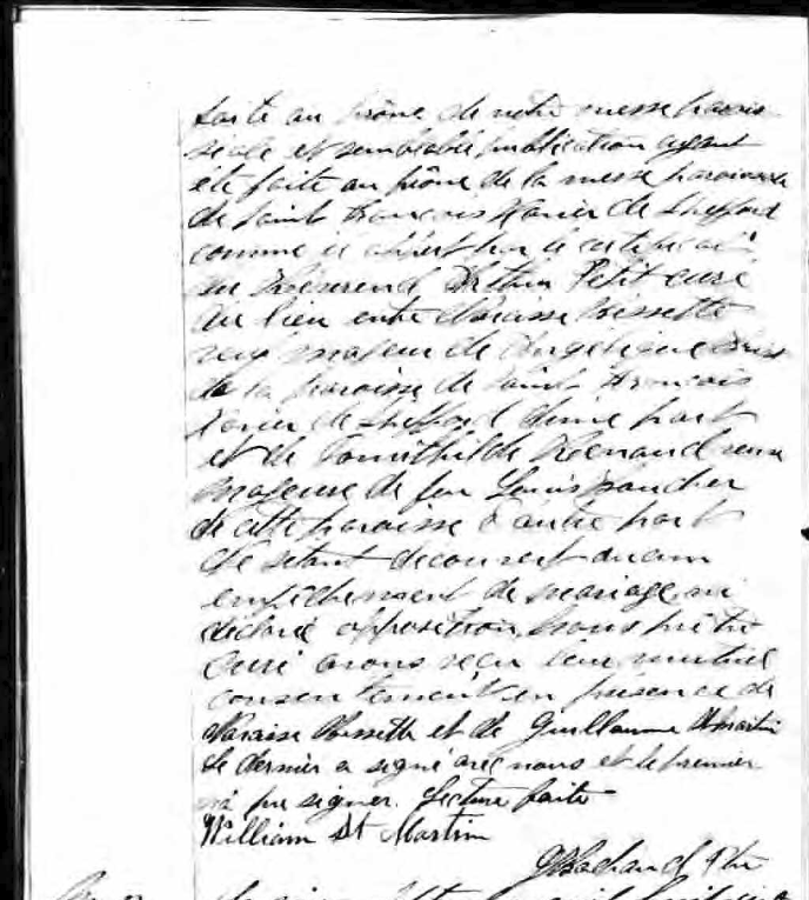 faite au prône de notre messe parois
siale et semblable publication ayant
été faite au prône de la messe paroissiale
de Saint François Xavier de Shefford
comme il appert par le certificat
du Révérend Arthur Petit curé
du lieu entre Narcisse Bissette
veuf majeur de Angélique
de la paroisse de Saint François
Xavier de Shefford d'une part
et de Domithilde Renaud veuve
majeure de feu Louis Boucher
de cette paroisse d'autre part
Ne s'étant découvert aucun
empêchement de mariage ni
déclaré opposition, Nous prêtre
curé avons reçu leur mutuel
consentement en présence de
Narcisse Bissette et de Guillaume St Martin
le dernier a signé avec nous et le premier
n'a pu signer. Lecture faite
William St Martin
Ptre